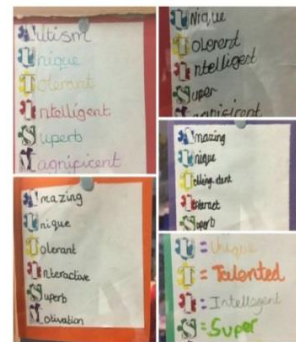 Autism
Unique
Tolerant
Intelligent
Superb
Magnificent
Amazing
Unique
Tolerant
Interactive
Superb
Motivation
Unique
Tolorend
Intelligest
Super
Magnificent
Amazing
Unique
Internet
Superb
= Unique
= Talented
= Intellegent
= Super